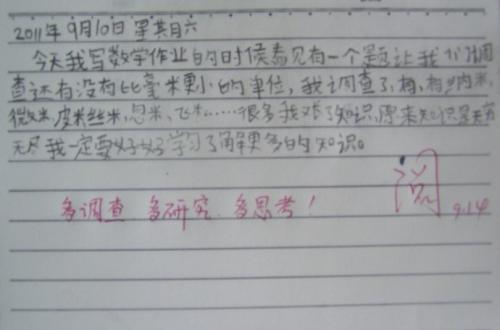 2011年9月10日 星其月六
今天我写数学作业的时候看见有一个题让我们调
查还有没有比毫米更小的单位，我调查了，有，有纳米，
微米，皮米丝米，忽米，飞米……很多我对了知识，原来知识是无穷
无尽我一定要好好学习了解更多的知识。
多调查 多研究 多思考！
阅
9.14